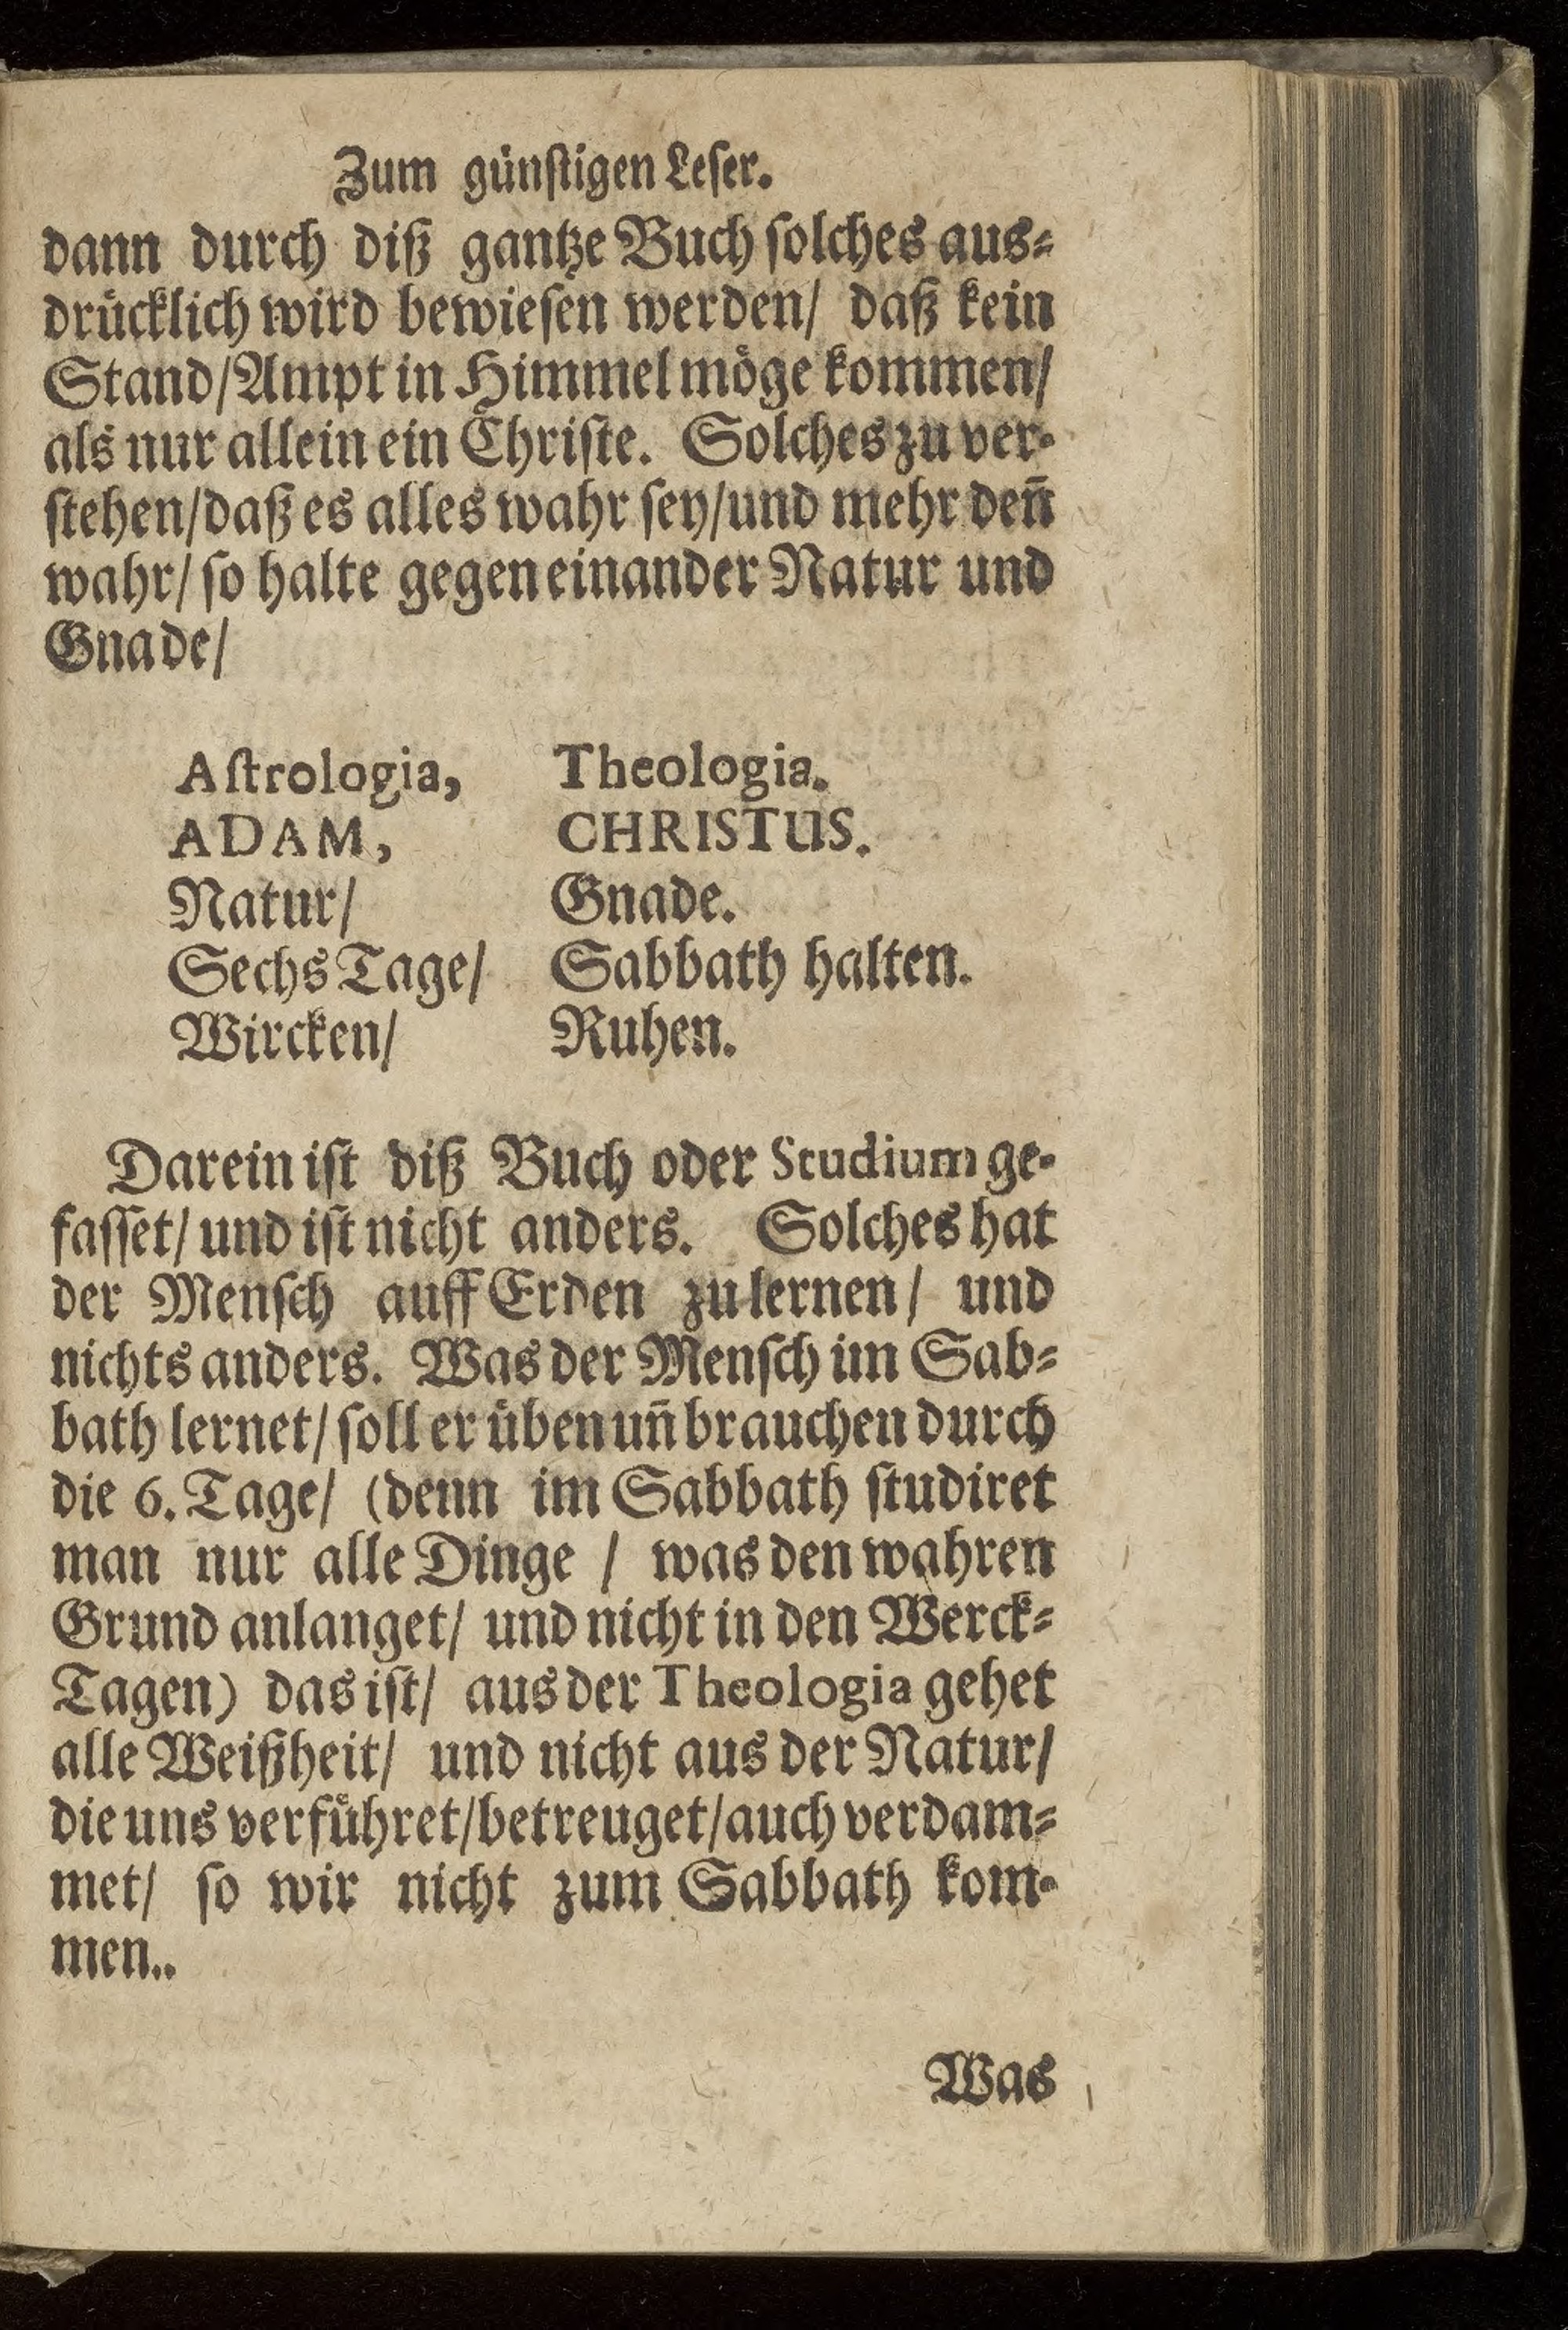 Zum günſtigen Leſer.
dann durch diß gantze Buch ſolches aus⸗
drücklich wird bewieſen werden/ daß kein
Stand/Ampt in Himmel möge kommen/
als nur allein ein Chriſte. Solches zu ver⸗
ſtehen/daß es alles wahr ſey/und mehr deñ
wahr/ ſo halte gegen einander Natur und
Gnade/
Aſtrologia, Theologia.
ADAM, CHRISTUS.
Natur/ Gnade.
Sechs Tage/ Sabbath halten.
Wircken/ Ruhen.
Darein iſt diß Buch oder Studium ge⸗
faſſet/ und iſt nicht anders. Solches hat
der Menſch auff Erden zu lernen/ und
nichts anders. Was der Menſch im Sab⸗
bath lernet/ ſoll er üben uñ brauchen durch
die 6. Tage/ (denn im Sabbath ſtudiret
man nur alle Dinge / was den wahren
Grund anlanget/ und nicht in den Werck⸗
Tagen) das iſt/ aus der Theologia gehet
alle Weißheit/ und nicht aus der Natur/
die uns verführet/betreuget/auch verdam⸗
met/ ſo wir nicht zum Sabbath kom⸗
men..
Was